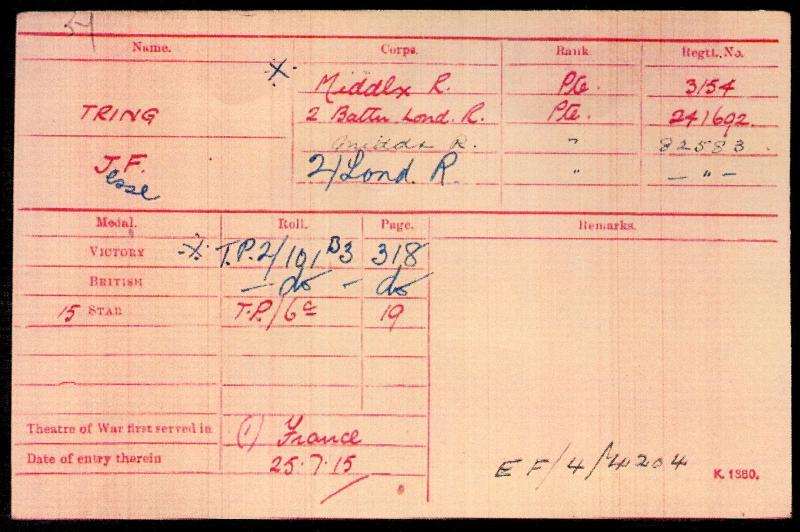 Name. Corps. Rank. Regtl. No.
X Middlx R. Pte. 3154
TRING 2 Battn Lond. R. Pte. 241692.
Middx R. " 82583.
J.F. 2/Lond. R. " — " —
esse
Medal. Roll. Page. Remarks.
VICTORY X T.P.2/101 B3 318
BRITISH — do — do
15 STAR T.P./6c 19
Theatre of War first served in (1) France
Date of entry therein 25.7.15
EF/4/4204 K. 1380.